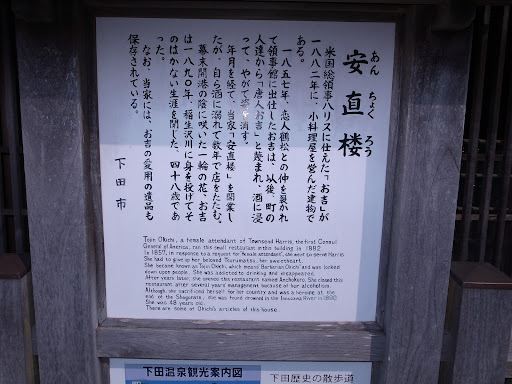 安直楼
あん
ちょく
ろう
米国総領事ハリスに仕えた「お吉」が
一八八二年に、小料理屋を営んだ建物で
ある。
一八五七年、恋人鶴松との仲を裂かれ
て領事館に出仕したお吉は、以後、町の
人達から「唐人お吉」と蔑まれ、酒に浸
って、やがて姿を消す。
年月を経て、当家「安直楼」を開業し
たが、自ら酒に溺れて数年で店をたたむ。
幕末開港の陰に咲いた一輪の花、お吉
は一八九〇年、稲生沢川に身を投げてそ
のはかない生涯を閉じた。四十八歳であ
った。
なお、当家には、お吉の愛用の遺品も
保存されている。
下田市
Tojin Okichi, a female attendant of Townsend Harris, the first Consul
General of America, ran this small restaurant in this building in 1882.
In 1857, in response to a request for female attendant, she went to serve Harris
She had to give up her beloved Tsurumatsu, her sweetheart.
She became known as Tojin Okichi, which means "Barbarian Okichi" and was looked
down upon people. She was addicted to drinking and disappeared.
After years later, she opened this restaurant named Anchokuro. She closed this
restaurant after several years management because of her alcoholism.
Although, she sacrificed herself for her country and was a heroine at the
end of the Shogunate, she was found drowned in the Inouzawa River in 1890.
She was 48 years old.
There are some of Okichi's articles of this house.
下田温泉観光案内図
下田歴史の散歩道